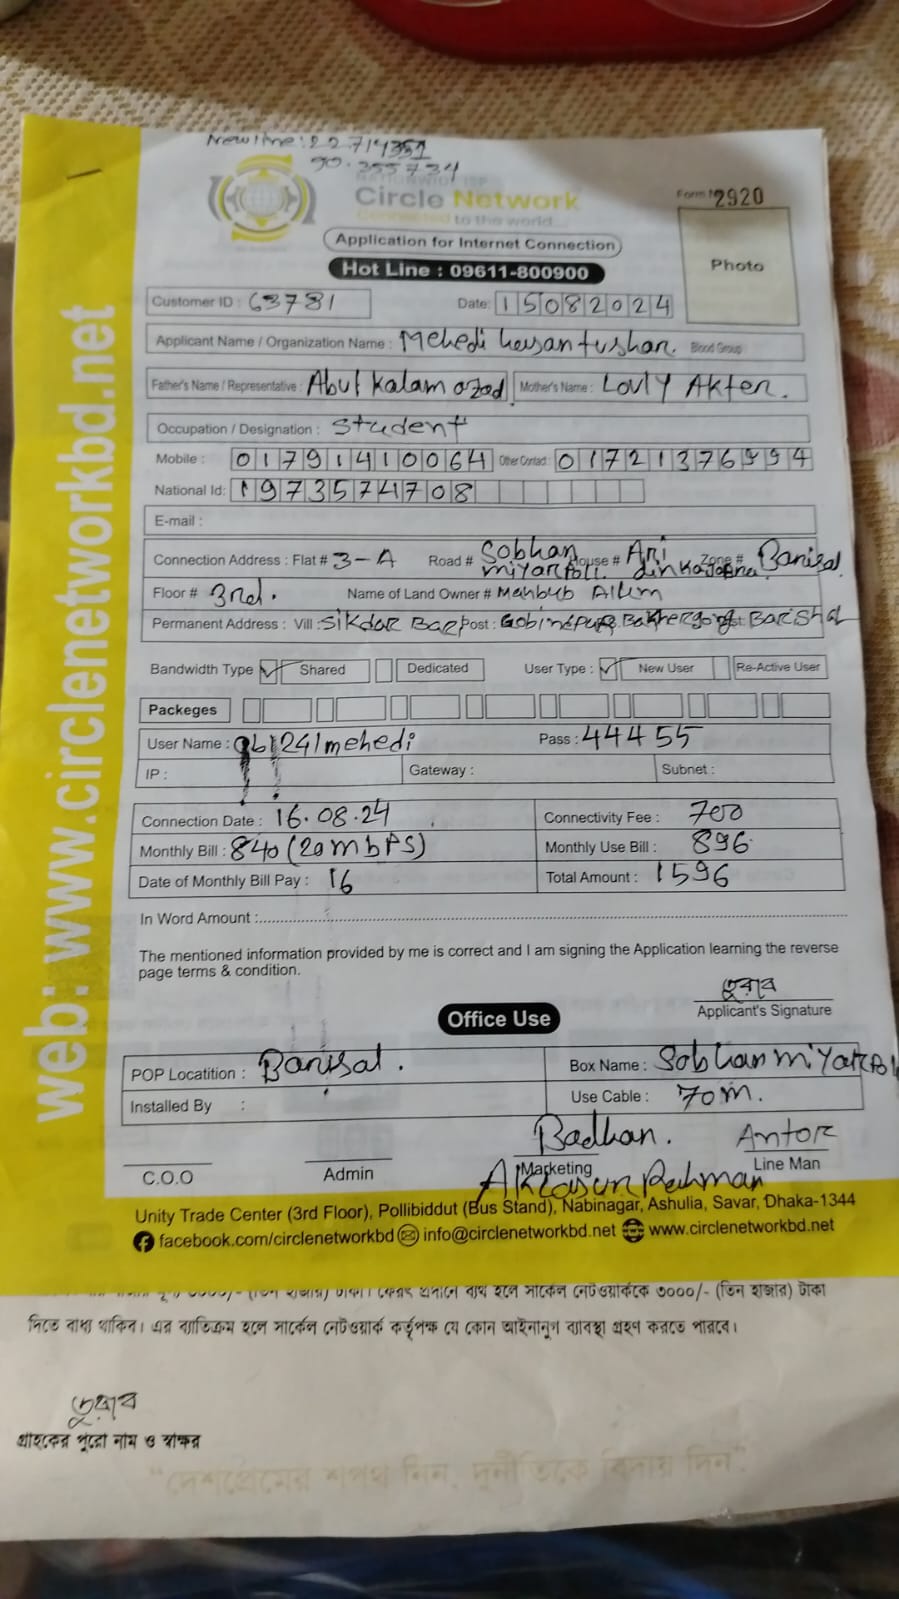 New line: 22.714351
90.355734
Circle Network
Connected to the world...
Form No 2920
Application for Internet Connection
Hot Line : 09611-800900
Photo
Customer ID : 63781 Date: 15082024
Applicant Name / Organization Name : Mehedi hasan tushar. Blood Group
Father's Name / Representative : Abul Kalam azad Mother's Name : Lovly Akter.
Occupation / Designation : Student
Mobile : 01791410064 Other Contact : 01721376994
National Id: 1973574708
E-mail :
Connection Address : Flat # 3-A Road # Sobhan miyar Poll. House # Ari Zone # Barisal.
Floor # 3rd. Name of Land Owner # Mahbub Allum
Permanent Address : Vill : Sikdar Bari Post : Barishal
Bandwidth Type ✓ Shared Dedicated User Type : ✓ New User Re-Active User
Packeges
User Name : mehedi Pass : 44455
IP : Gateway : Subnet :
Connection Date : 16.08.24 Connectivity Fee : 700
Monthly Bill : 840 (20mbps) Monthly Use Bill : 896
Date of Monthly Bill Pay : 16 Total Amount : 1596
In Word Amount :
The mentioned information provided by me is correct and I am signing the Application learning the reverse
page terms & condition.
Applicant's Signature
Office Use
POP Locatition : Barisal. Box Name : Sobhan miyar Pol
Installed By : Use Cable : 70m.
Badhan. Antor
C.O.O Admin Marketing Line Man
Rahman
Unity Trade Center (3rd Floor), Pollibiddut (Bus Stand), Nabinagar, Ashulia, Savar, Dhaka-1344
facebook.com/circlenetworkbd info@circlenetworkbd.net www.circlenetworkbd.net
web: www.circlenetworkbd.net
৩০০০/- (তিন হাজার) টাকা। ফেরৎ প্রদানে ব্যর্থ হলে সার্কেল নেটওয়ার্ককে ৩০০০/- (তিন হাজার) টাকা
দিতে বাধ্য থাকিব। এর ব্যাতিক্রম হলে সার্কেল নেটওয়ার্ক কর্তৃপক্ষ যে কোন আইনানুগ ব্যাবস্থা গ্রহণ করতে পারবে।
গ্রাহকের পুরো নাম ও স্বাক্ষর
"দেশপ্রেমের শপথ নিন, দুর্নীতিকে বিদায় দিন"